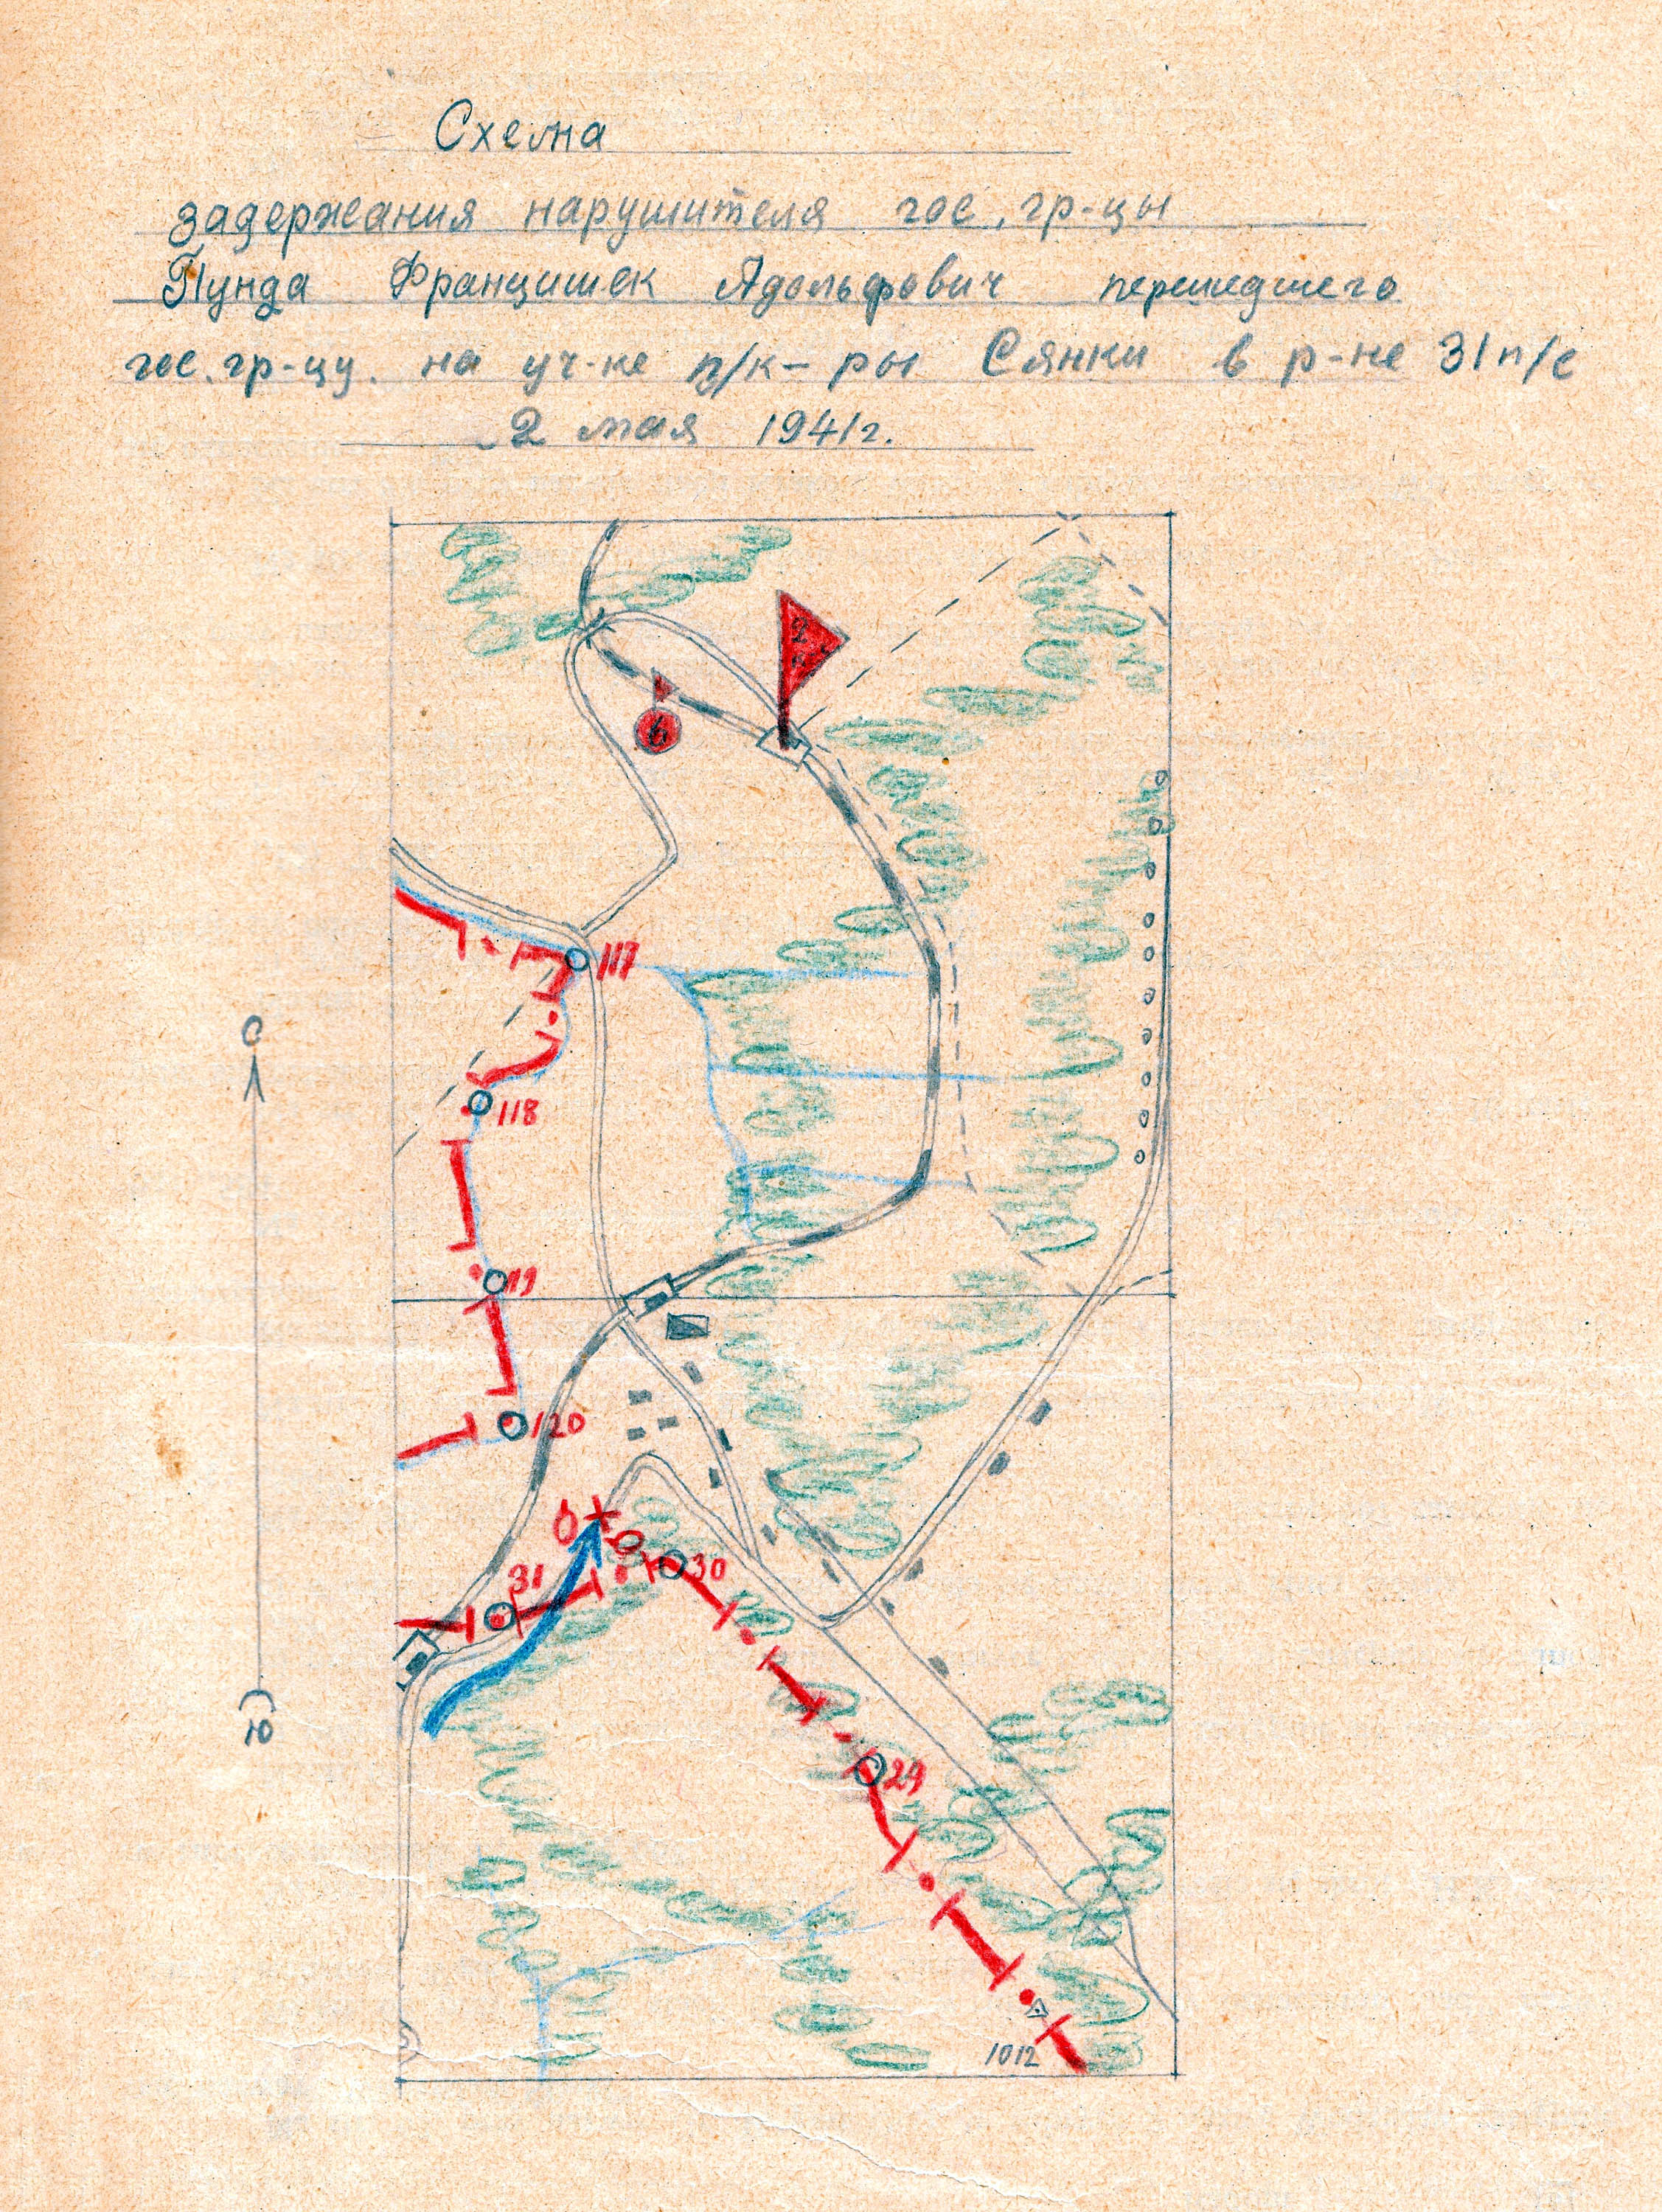 Схема
задержания нарушителя гос. гр-цы
Пунда Францишек Адольфович перешедшего
гос. гр-цу. на уч-ке п/к-ры Сянки в р-не 31 п/с
2 мая 1941 г.
6
117
С
118
119
120
31
30
Ю
29
1012